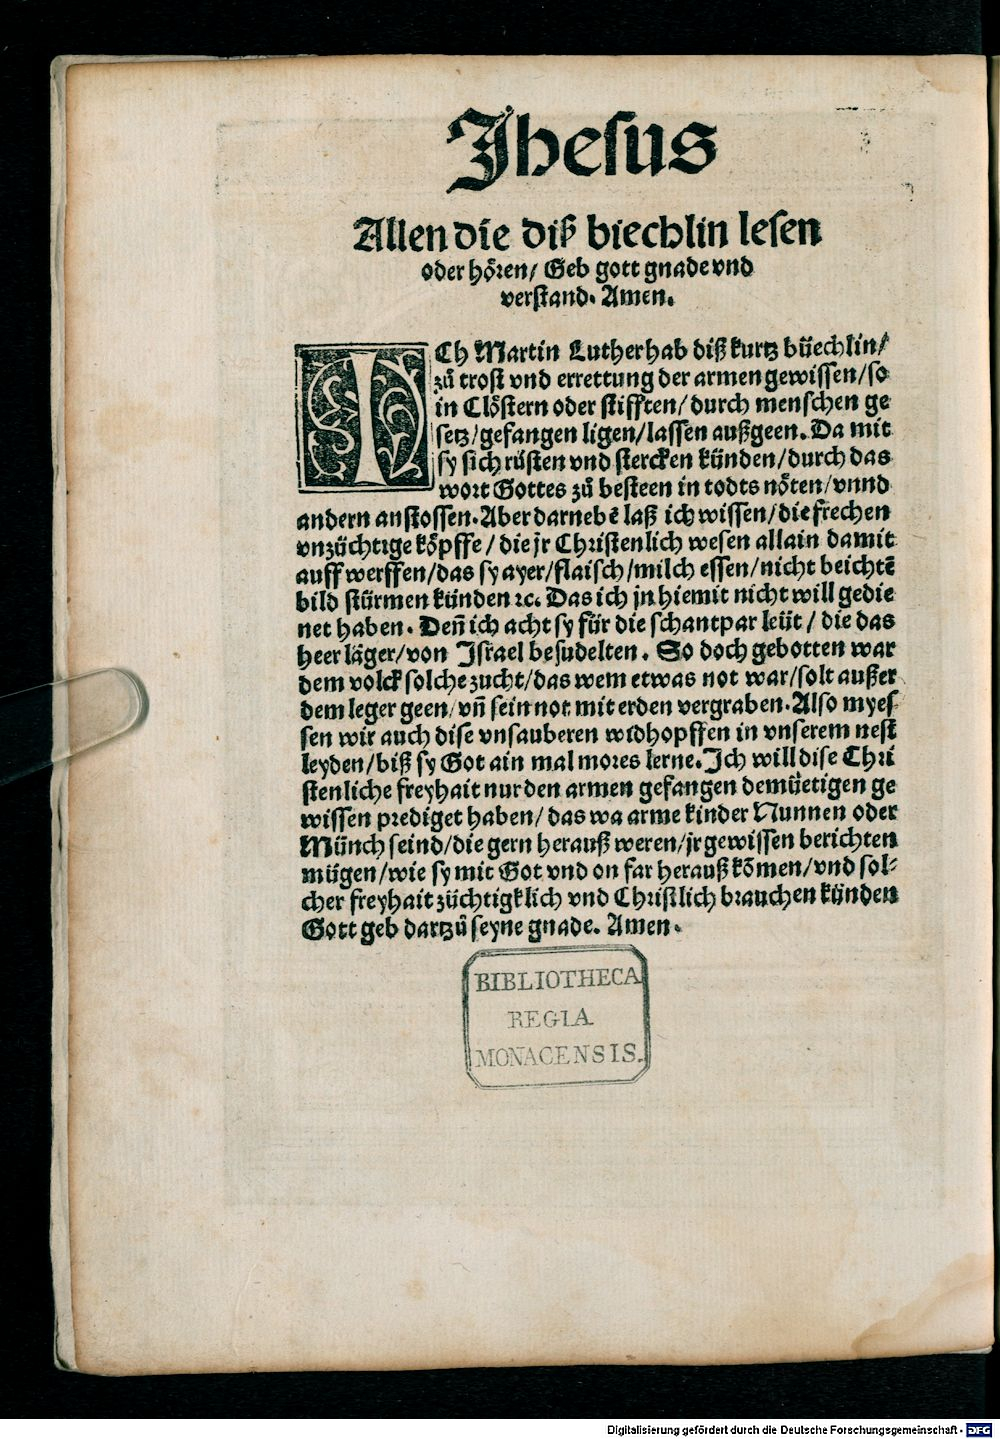 Jhesus
Allen die diß biechlin lesen
oder hören/ Geb gott gnade vnd
verstand. Amen.
ICh Martin Luther hab diß kurtz büechlin/
zů trost vnd errettung der armen gewissen/so
in Clöstern oder stifften/durch menschen ge
setz/gefangen ligen/lassen außgeen. Da mit
sy sich rüsten vnd stercken künden/durch das
wort Gottes zů besteen in todts nöten/vnnd
andern anstossen. Aber darnebē laß ich wissen/die frechen
vnzüchtige köpffe/die jr Christenlich wesen allain damit
auffwerffen/das sy ayer/flaisch/milch essen/nicht beichtē
bild stürmen künden ꝛc. Das ich jn hiemit nicht will gedie
net haben. Deñ ich acht sy für die schantpar leüt/die das
heer läger/von Israel besudelten. So doch gebotten war
dem volck solche zucht/das wem etwas not war/solt außer
dem leger geen/vñ sein not mit erden vergraben. Also myes-
sen wir auch dise vnsauberen widhopffen in vnserem nest
leyden/biß sy Got ain mal mores lerne. Ich will dise Chri
stenliche freyhait nur den armen gefangen demüetigen ge
wissen prediget haben/das wa arme kinder Nunnen oder
Münch seind/die gern herauß weren/jr gewissen berichten
mügen/wie sy mit Got vnd on far herauß kōmen/vnd sol-
cher freyhait züchtigklich vnd Christlich brauchen künden
Gott geb dartzů seyne gnade. Amen.
BIBLIOTHECA
REGIA
MONACENSIS.
Digitalisierung gefördert durch die Deutsche Forschungsgemeinschaft - DFG